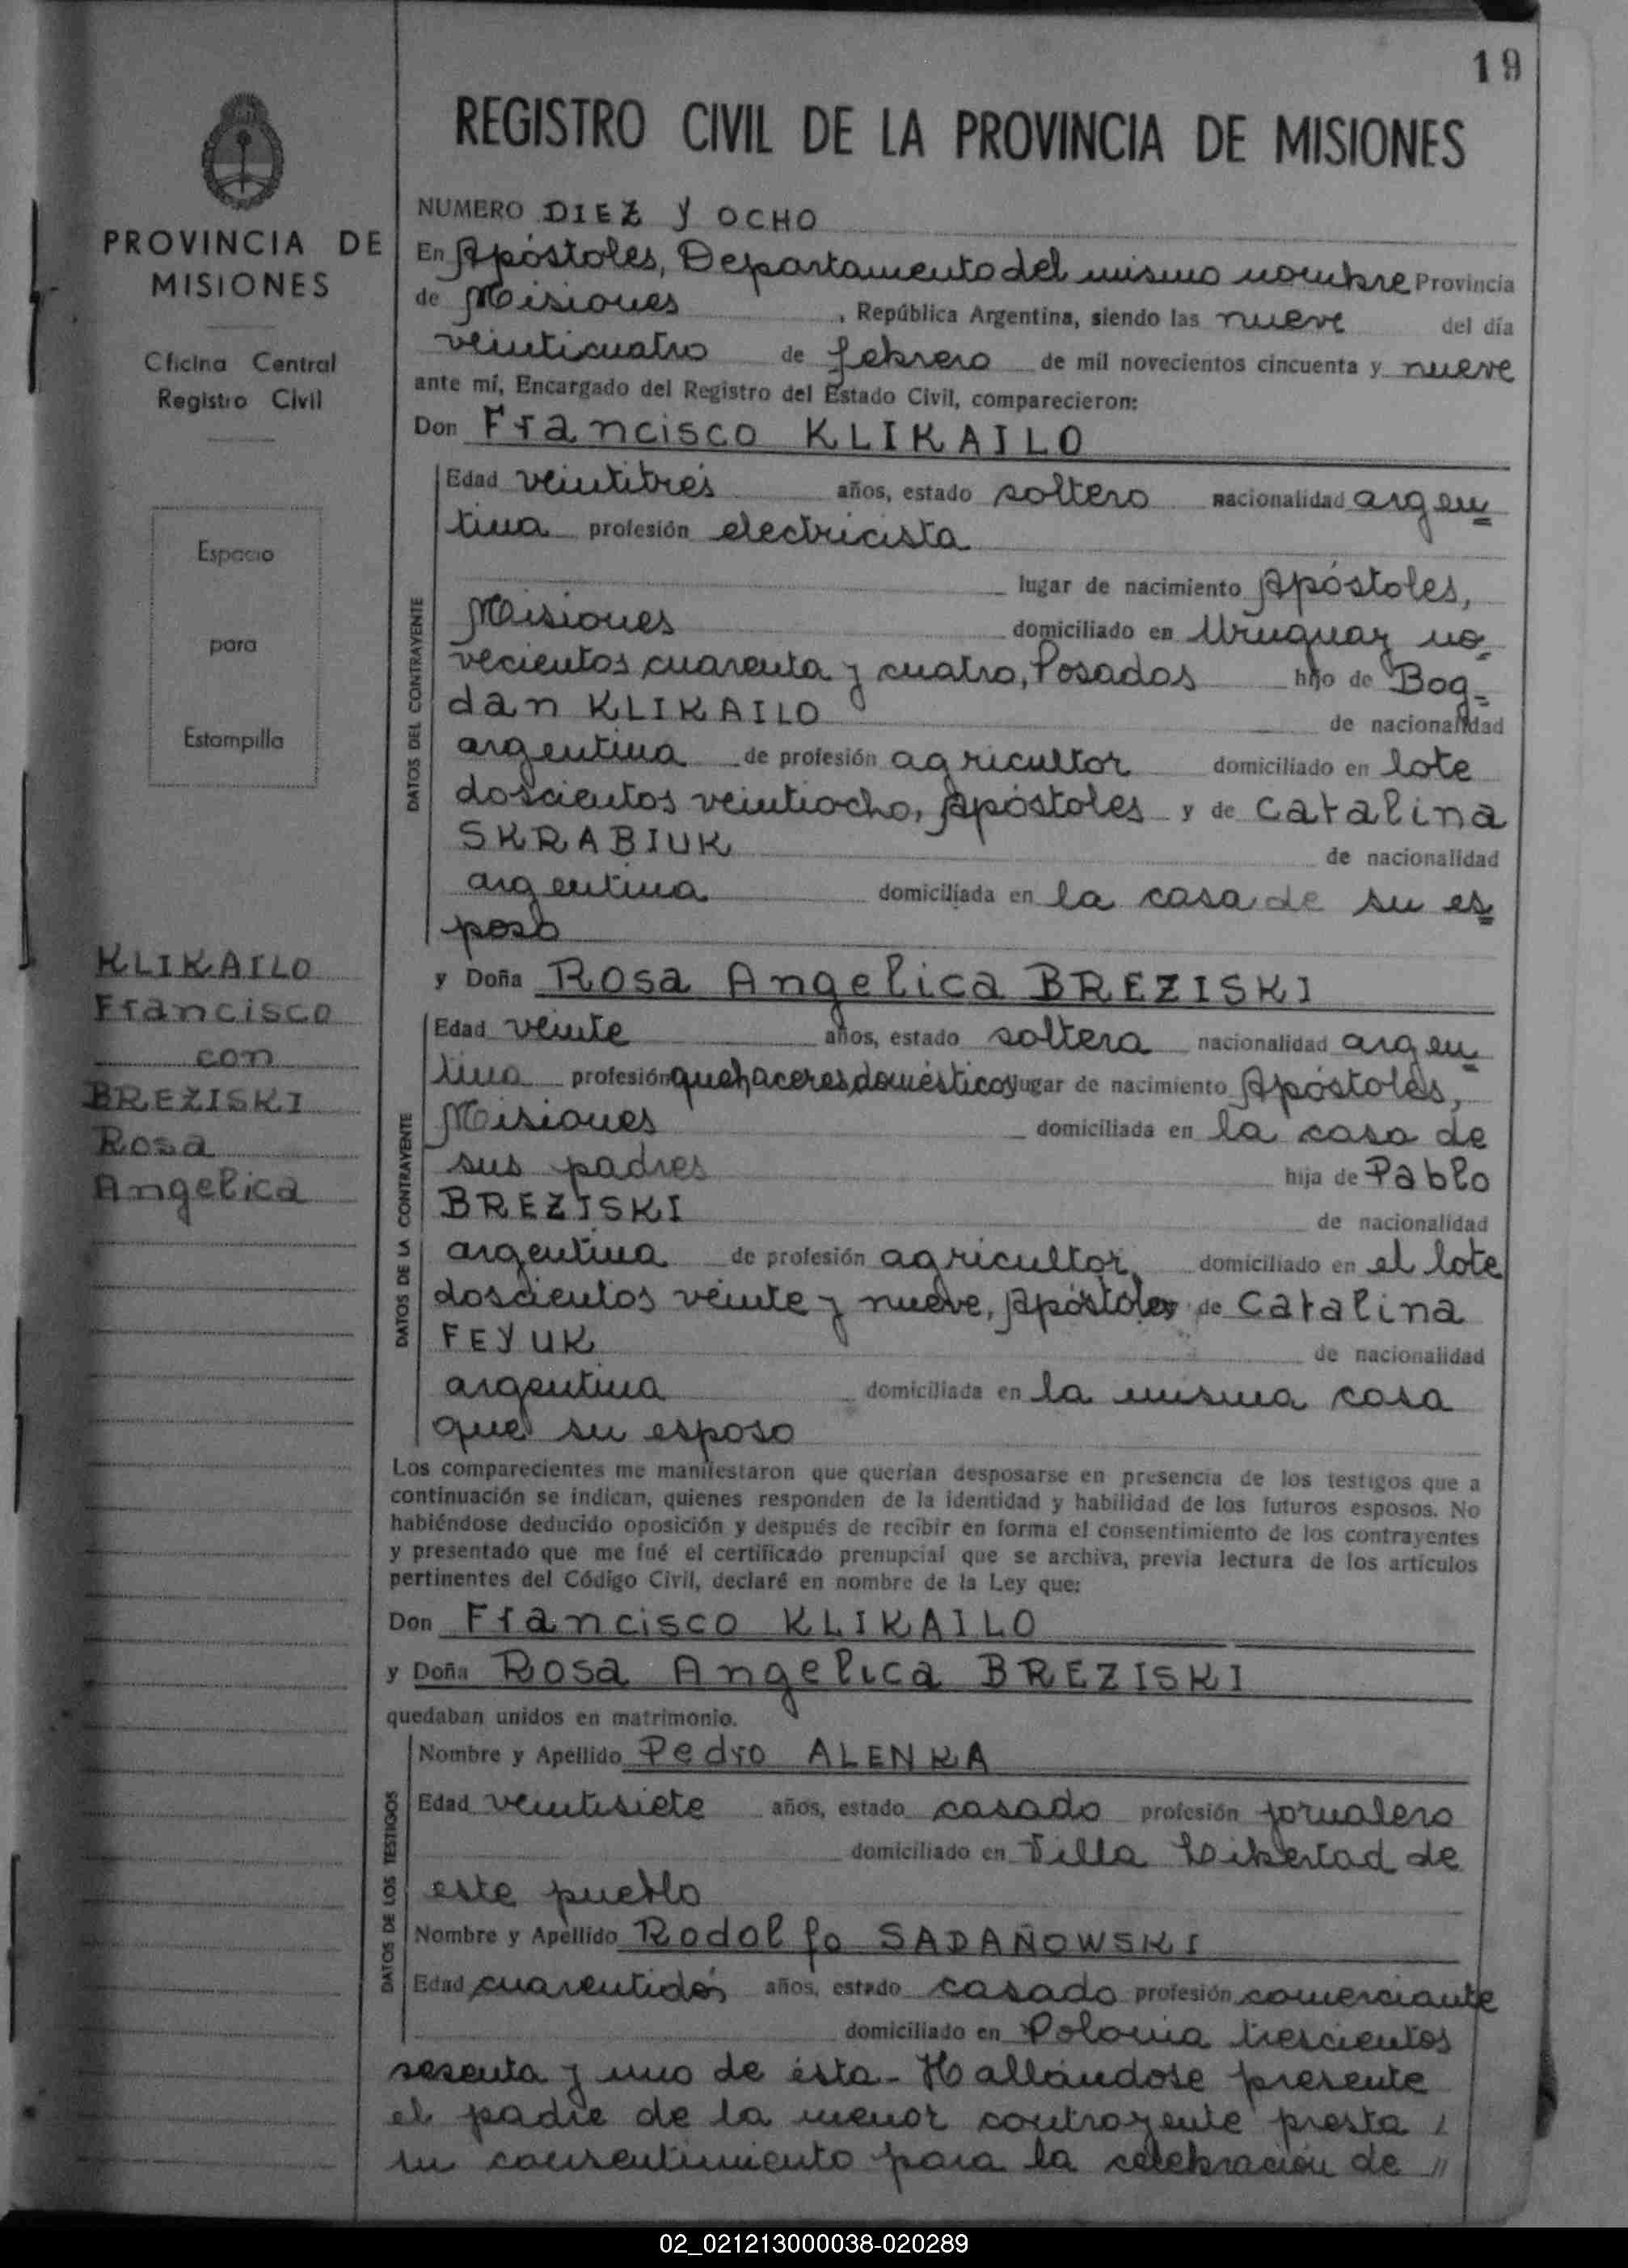 19
REGISTRO CIVIL DE LA PROVINCIA DE MISIONES
PROVINCIA DE
MISIONES
Oficina Central
Registro Civil
Espacio
para
Estampilla
KLIKAILO
Francisco
con
BREZISKI
Rosa
Angelica
NUMERO DIEZ Y OCHO
En Apóstoles, Departamento del mismo nombre Provincia
de Misiones, República Argentina, siendo las nueve del día
veinticuatro de febrero de mil novecientos cincuenta y nueve
ante mí, Encargado del Registro del Estado Civil, comparecieron:
Don Francisco KLIKAILO
DATOS DEL CONTRAYENTE
Edad veintitrés años, estado soltero nacionalidad argen=
tina profesión electricista
lugar de nacimiento Apóstoles,
Misiones domiciliado en Uruguay no-
vecientos cuarenta y cuatro, Posadas hijo de Bog-
dan KLIKAILO de nacionalidad
argentina de profesión agricultor domiciliado en lote
doscientos veintiocho, Apóstoles y de Catalina
SKRABIUK de nacionalidad
argentina domiciliada en la casa de su es=
poso
y Doña Rosa Angelica BREZISKI
DATOS DE LA CONTRAYENTE
Edad veinte años, estado soltera nacionalidad argen=
tina profesión quehaceres domésticos lugar de nacimiento Apóstoles,
Misiones domiciliada en la casa de
sus padres hija de Pablo
BREZISKI de nacionalidad
argentina de profesión agricultor, domiciliado en el lote
doscientos veinte y nueve, Apóstoles y de Catalina
FEYUK de nacionalidad
argentina domiciliada en la misma casa
que su esposo
Los comparecientes me manifestaron que querían desposarse en presencia de los testigos que a
continuación se indican, quienes responden de la identidad y habilidad de los futuros esposos. No
habiéndose deducido oposición y después de recibir en forma el consentimiento de los contrayentes
y presentado que me fué el certificado prenupcial que se archiva, previa lectura de los artículos
pertinentes del Código Civil, declaré en nombre de la Ley que:
Don Francisco KLIKAILO
y Doña Rosa Angelica BREZISKI
quedaban unidos en matrimonio.
DATOS DE LOS TESTIGOS
Nombre y Apellido Pedro ALENKA
Edad veintisiete años, estado casado profesión jornalero
domiciliado en Villa Libertad de
este pueblo
Nombre y Apellido Rodolfo SADAÑOWSKI
Edad cuarentidós años, estado casado profesión comerciante
domiciliado en Polonia trescientos
sesenta y uno de ésta- Hallándose presente
el padre de la menor contrayente presta /
su consentimiento para la celebración de //
02_021213000038-020289